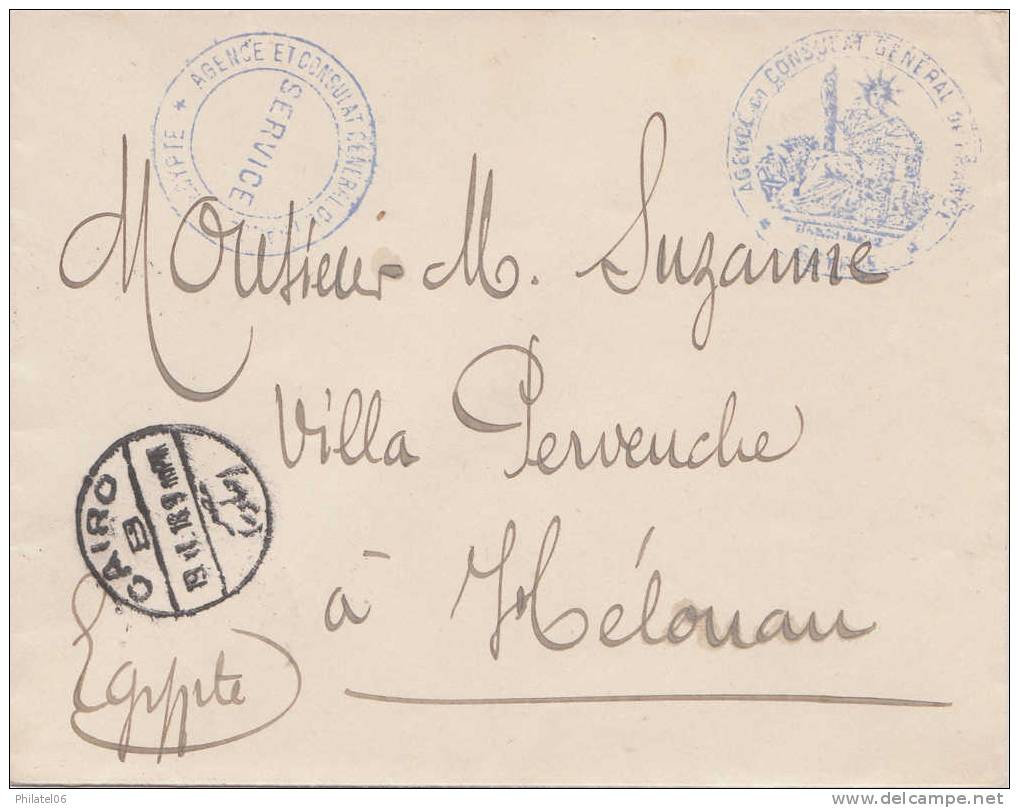 AGENCE ET CONSULAT GENERAL DE
SERVICE
AGENCE DU CONSULAT GENERAL DE FRANCE
Monsieur M. Suzanne
Villa Pervenche
à Hélouan
Egypte
CAIRO
B
19.11.18.9
Philatel06
delcampe.net